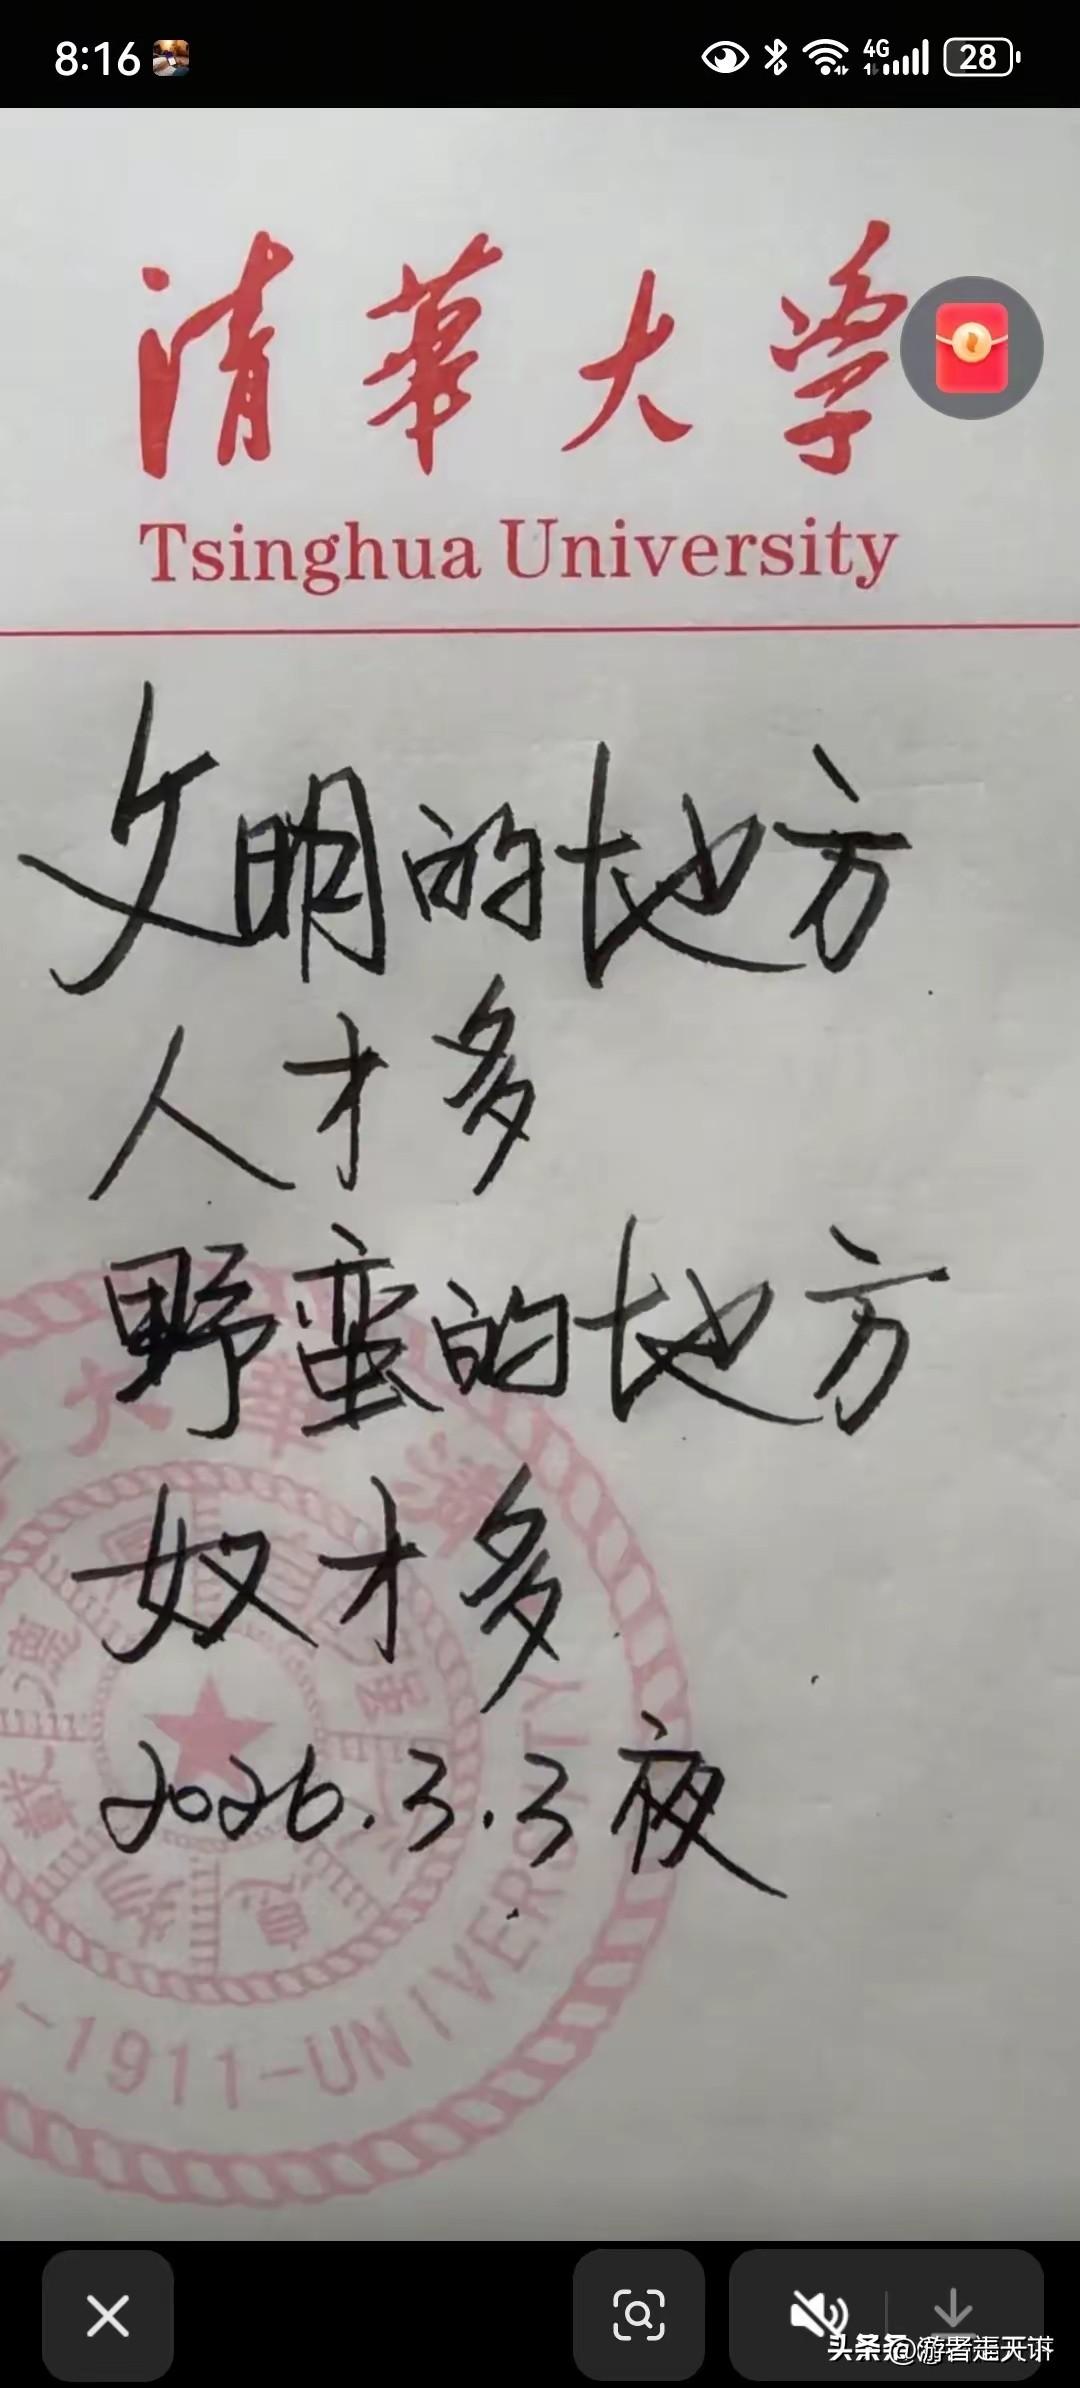 8:16
4G
28
清華大学
Tsinghua University
文明的地方
人才多
野蛮的地方
奴才多
2026.3.3夜
大華清
-1911-UNIVERSITY
头条 @游者走天讲